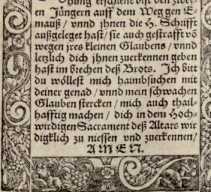 den zweyen Jüngern auff dem Weg gen E-
mauß / vnnd jhnen die H. Schrifft
außgeleget hast / sie auch gestrafft vō
wegen jres kleinen Glaubens / vnnd
letzlich dich jhnen zuerkennen geben
hast im brechen deß Brots. Ich bitt
du wöllest mich haimbsuchen mit
deiner genad / vnnd mein schwachen
Glauben stercken / mich auch thail-
hafftig machen / dich in dem Hoch-
wirdigen Sacrament deß Altars wir
diglich zu niessen vnd zuerkennen /
AMEN.